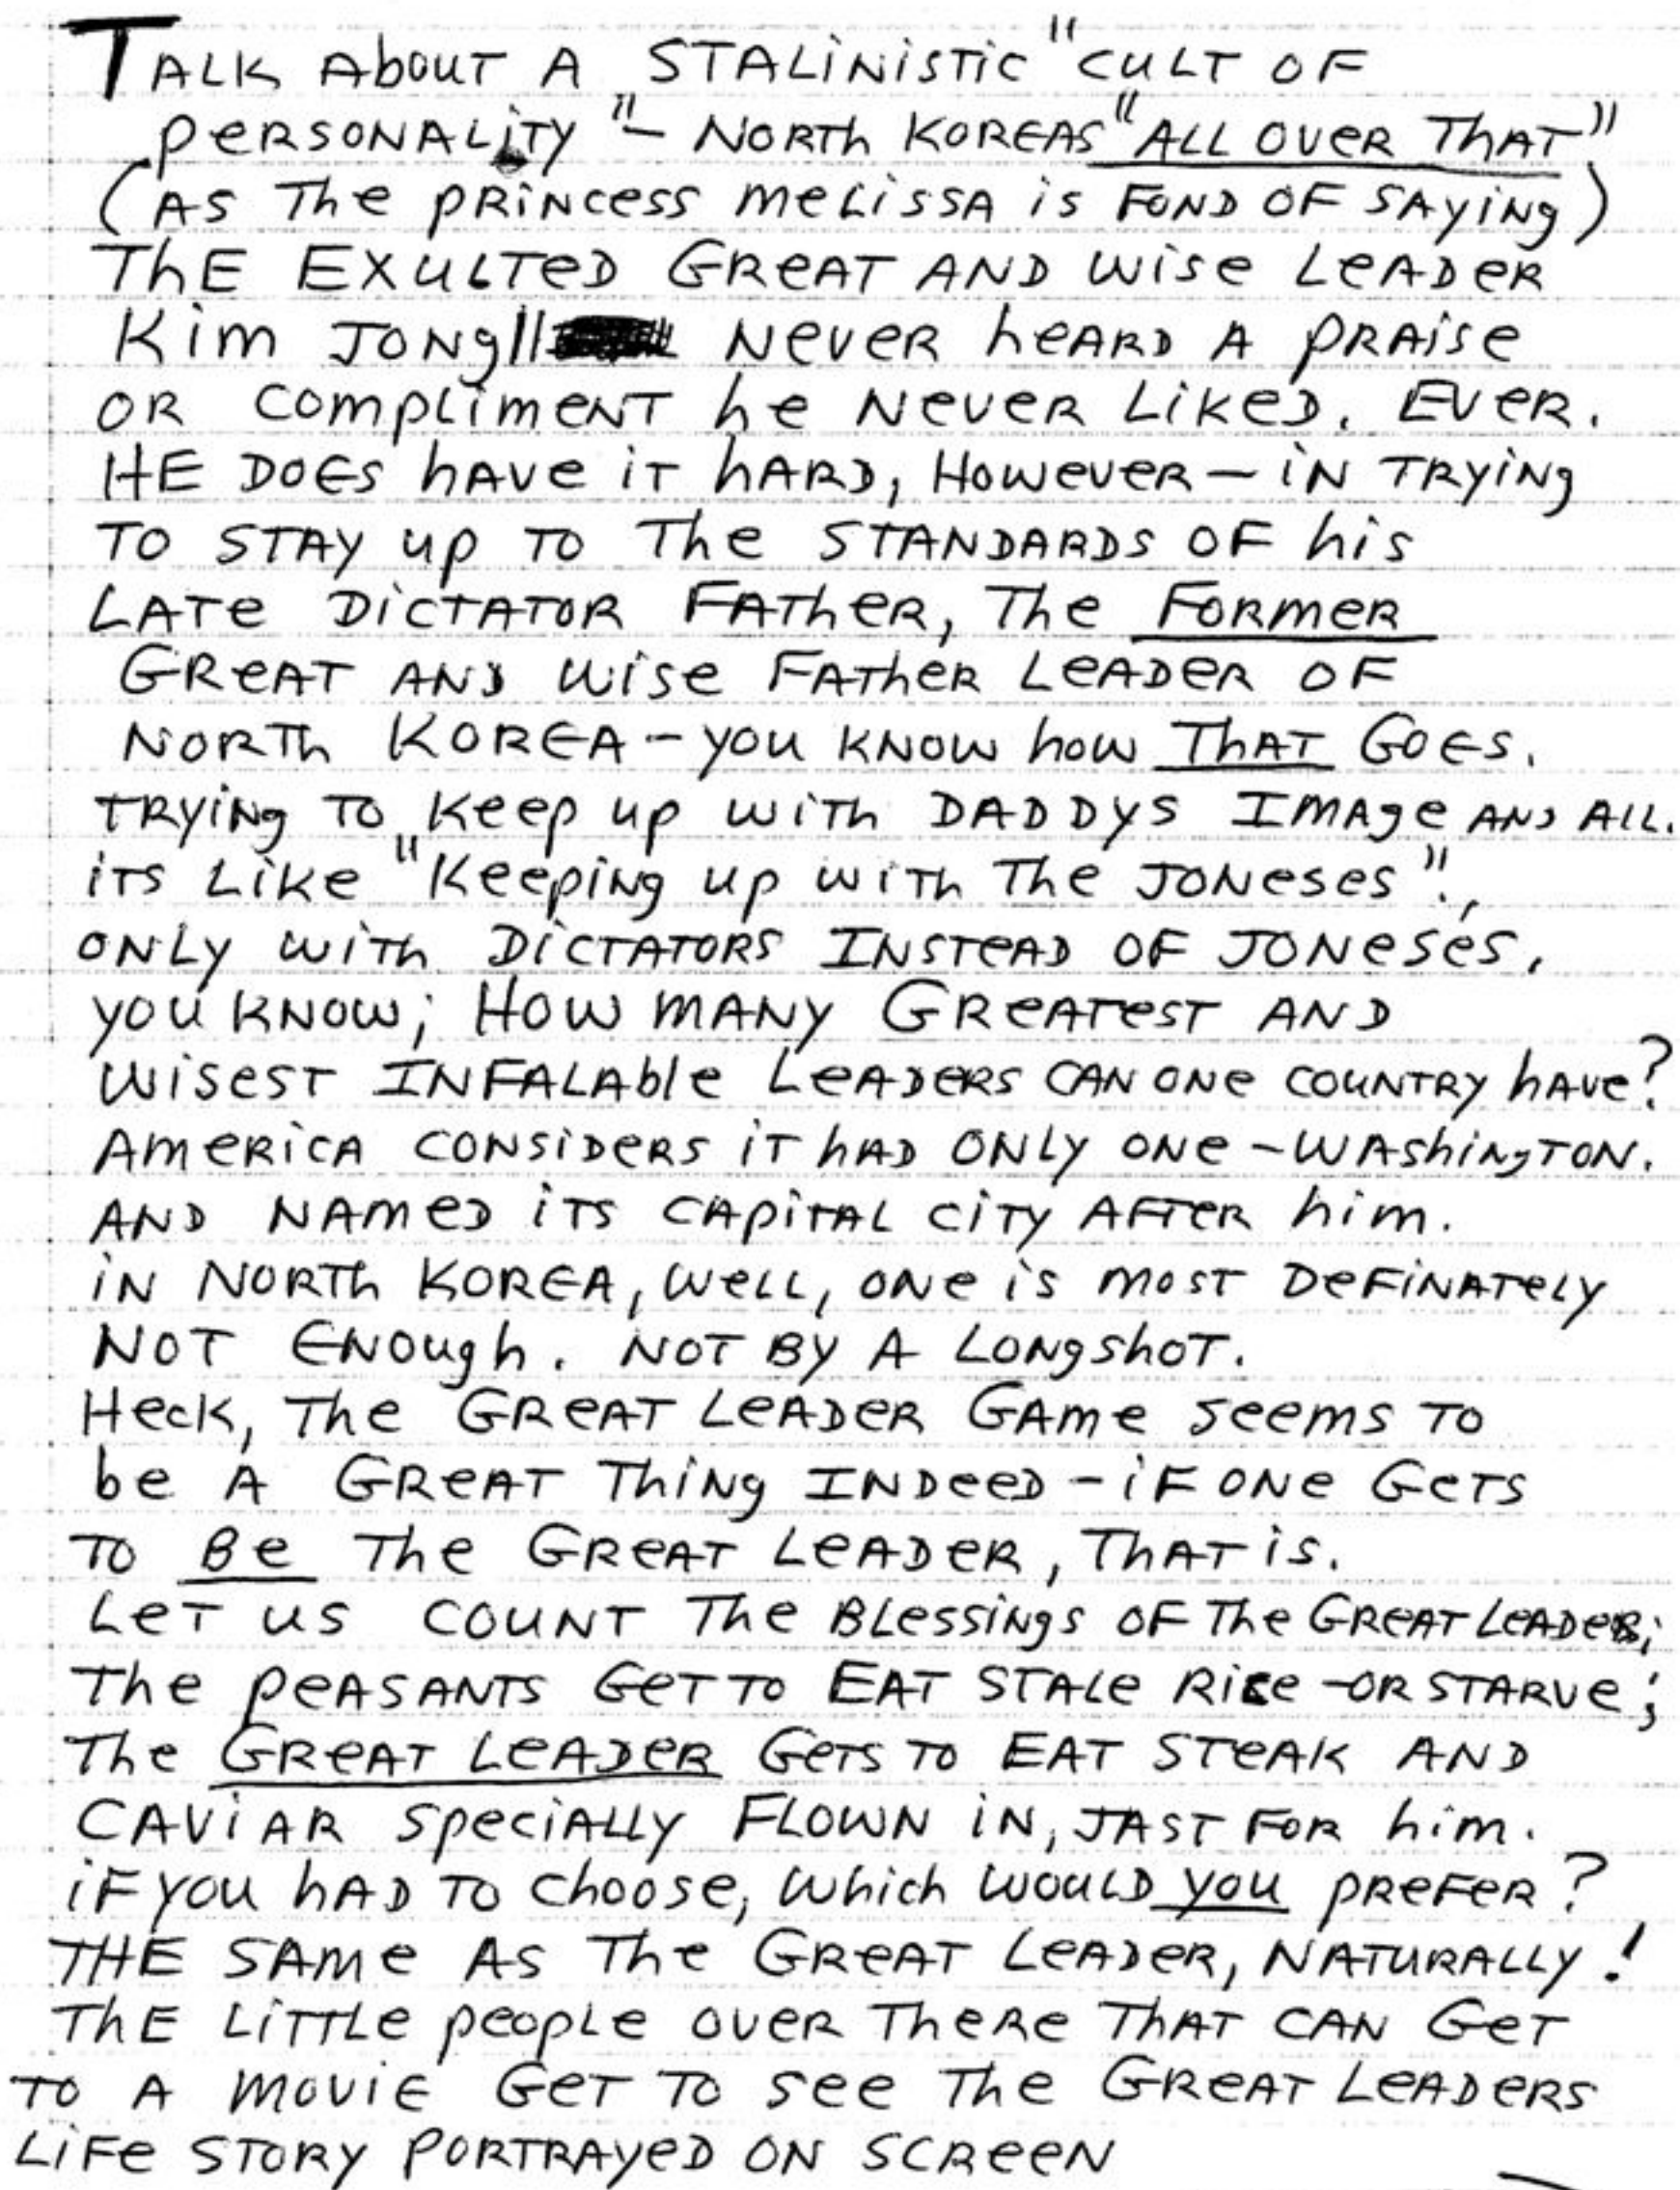 TALK About A STALINISTIC "CULT OF
PERSONALITY" - NORTH KOREAS "ALL OVER THAT"
(AS The PRINCESS MELISSA is FOND OF SAYING)
ThE EXULTED GREAT AND WISE LEADER
Kim JONG II NEVER heARD A PRAISE
OR COMPLIMENT he NEVER LIKED. EVER.
HE DOES hAVE iT hARD, HOWEVER - iN TRYING
TO STAY up TO The STANDARDS OF his
LATE DICTATOR FATHER, The FORMER
GREAT AND WISE FATHER LEADER OF
NORTH KOREA - YOU KNOW how THAT GOES.
TRYING TO KEEP UP WITH DADDYS IMAGE AND ALL.
iTS LIKE "KEEPING UP WITH The JONESES".,
ONLY WITH DICTATORS INSTEAD OF JONESES,
YOU KNOW; HOW MANY GREATEST AND
WISEST INFALABLE LEADERS CAN ONE COUNTRY hAVE?
AMERICA CONSIDERS iT hAD ONLY ONE - WASHINGTON.
AND NAMED iTS CAPITAL CITY AFTER him.
iN NORTH KOREA, WELL, ONE is MOST DEFINATELY
NOT ENOUGH. NOT BY A LONGSHOT.
HECK, The GREAT LEADER GAME SEEMS TO
be A GREAT THING INDEED - iF ONE GETS
TO BE The GREAT LEADER, THAT is.
LET US COUNT The BLESSINGS OF The GREAT LEADER;
The PEASANTS GET TO EAT STALE RICE - OR STARVE;
The GREAT LEADER GETS TO EAT STEAK AND
CAVIAR SPECIALLY FLOWN iN, JAST FOR him.
iF YOU hAD TO CHOOSE, WHICH WOULD YOU PREFER?
THE SAME AS The GREAT LEADER, NATURALLY!
ThE LITTLE PEOPLE OVER THERE THAT CAN GET
TO A MOVIE GET TO SEE The GREAT LEADERS
LIFE STORY PORTRAYED ON SCREEN